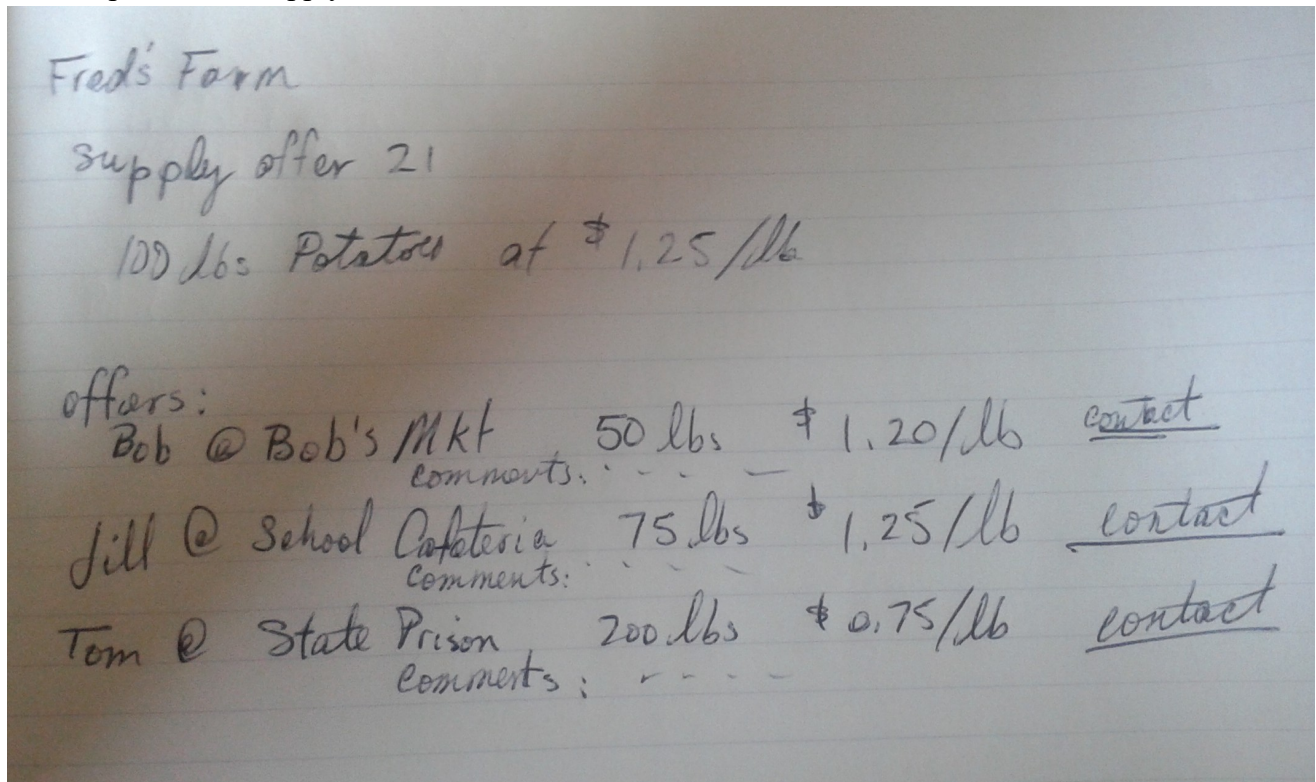 Fred's Farm
supply offer 21
100 lbs Potatoes at $1.25/lb
offers:
Bob @ Bob's Mkt 50 lbs $1.20/lb contact
comments: - - - -
Jill @ School Cafeteria 75 lbs $1.25/lb contact
comments: - - - -
Tom @ State Prison 200 lbs $0.75/lb contact
comments: - - - -